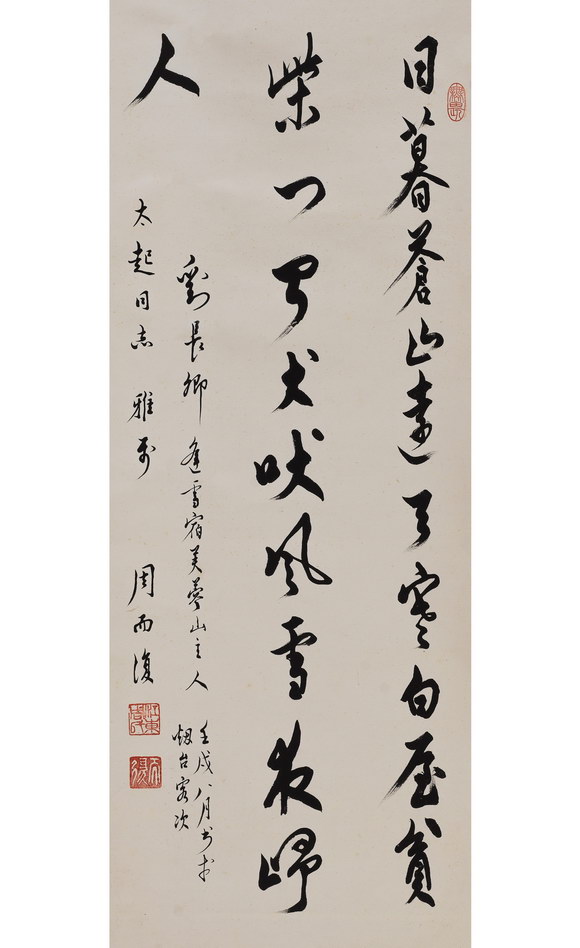 日暮蒼山遠天寒白屋貧
柴門聞犬吠風雪夜歸
人
劉長卿 逢雪宿芙蓉山主人 壬戌八月書於
烟台客次
太起同志 雅属 周而復
江東周氏
而復